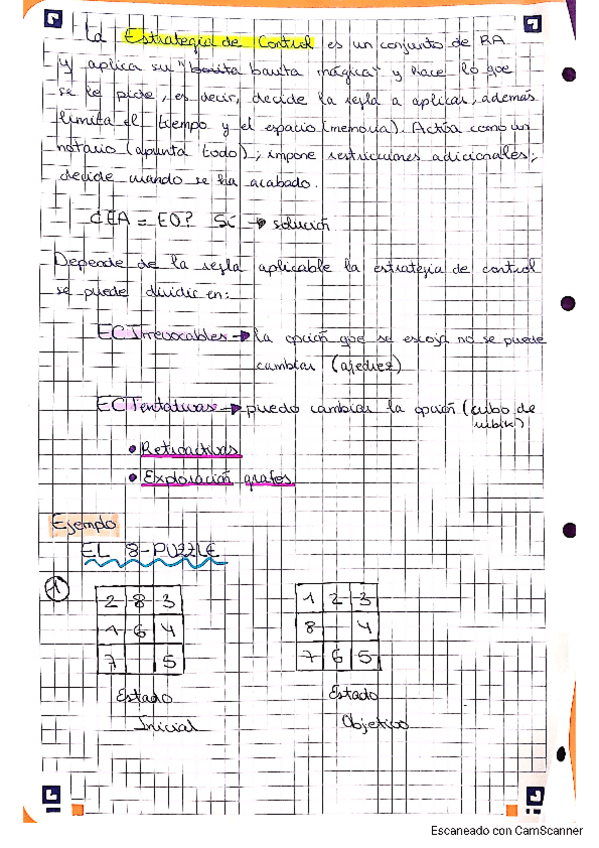 La Estrategia de Control es un conjunto de RA
y aplica su "bonita barita mágica" y hace lo que
se le pide, es decir, decide la regla a aplicar, además
limita el tiempo y el espacio (memoria). Actúa como un
notario (apunta todo); impone restricciones adicionales;
decide cuando se ha acabado.
¿EA = EO? Sí → solución
Depende de la regla aplicable la estrategia de control
se puede dividir en:
EC Irrevocables → la opción que se escoja no se puede
cambiar (ajedrez)
EC Tentativas → puedo cambiar la opción (cubo de
rubik)
• Retroactivas
• Exploración grafos
Ejemplo
EL 8-PUZZLE
1
2 8 3 1 2 3
1 6 4 8 4
7 5 7 6 5
Estado Estado
Inicial Objetivo
Escaneado con CamScanner